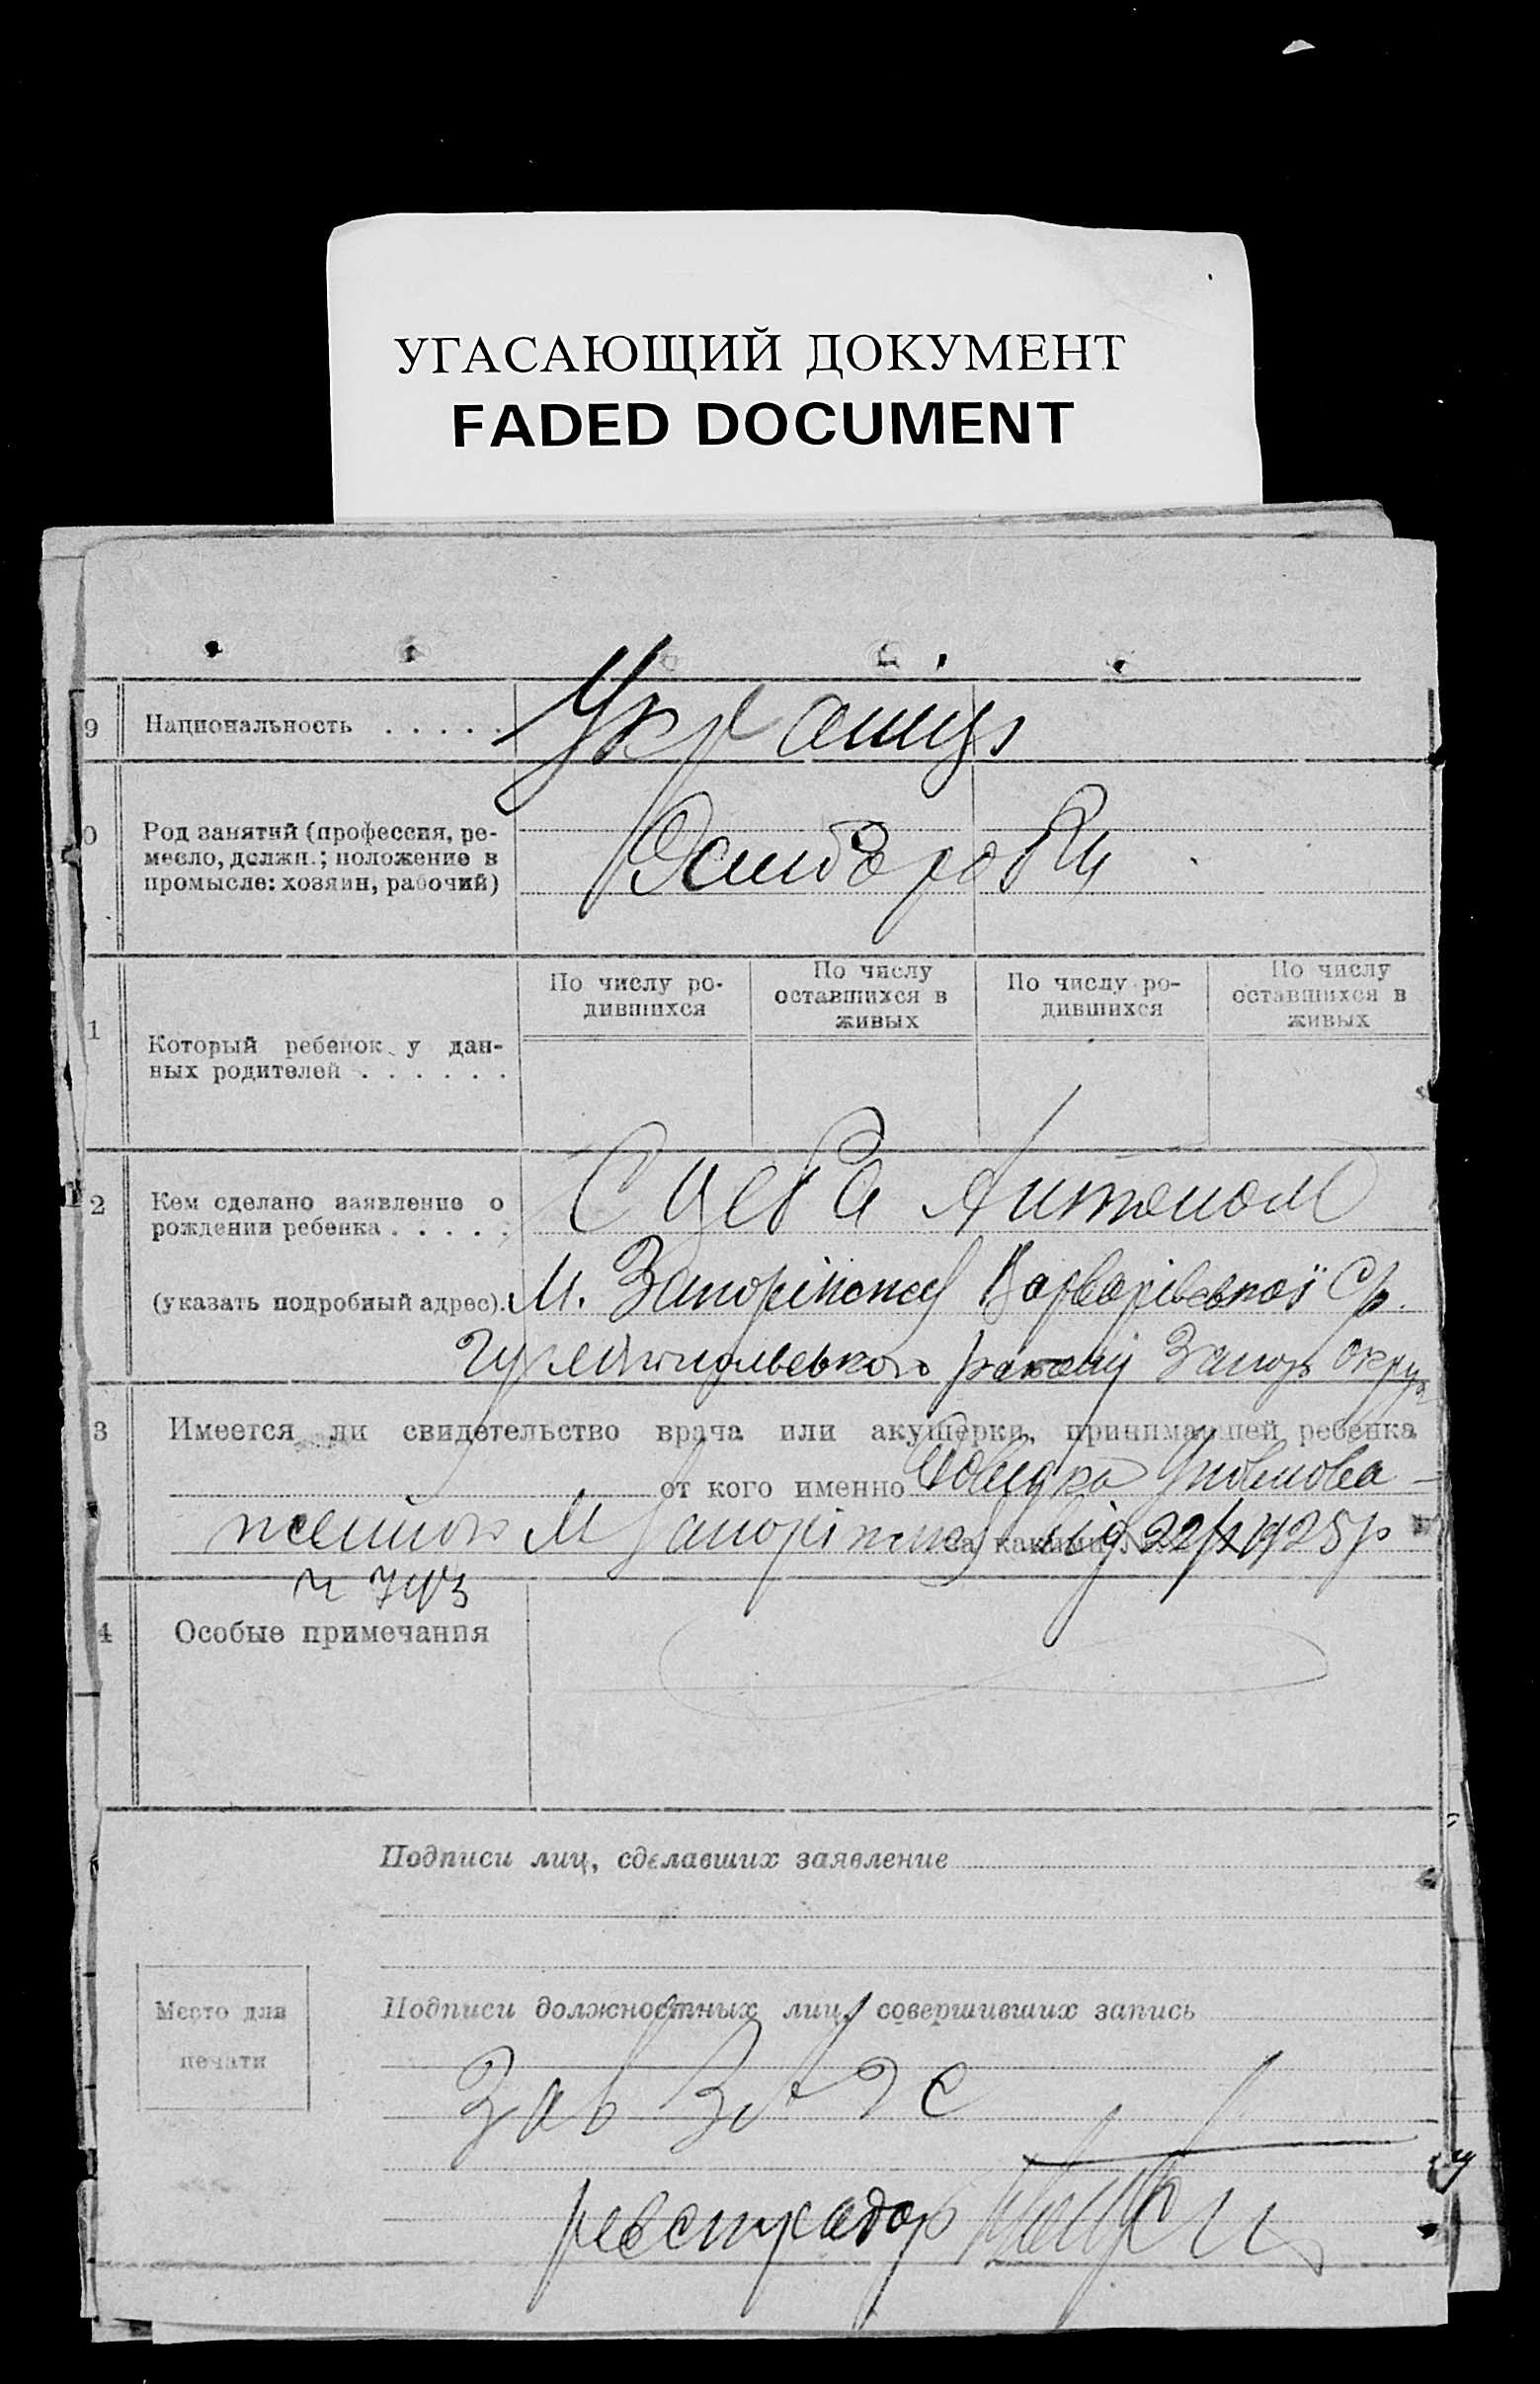 УГАСАЮЩИЙ ДОКУМЕНТ
FADED DOCUMENT
9 Национальность . . . . .
Українці
0 Род занятий (профессия, ре-
месло, должн.; положение в
промысле: хозяин, рабочий)
По числу ро-
дившихся
По числу
оставшихся в
живых
По числу ро-
дившихся
По числу
оставшихся в
живых
1 Который ребенок у дан-
ных родителей . . . . . .
2 Кем сделано заявление о
рождении ребенка . . . . .
Антоном
(указать подробный адрес). М. Запоріжжя Варварівської С/р.
Гуляйпільського району Запор округ
3 Имеется ли свидетельство врача или акушерки, принимавшей ребенка
от кого именно
М Запоріжжя за каким № від 22/X 1925 р
4 Особые примечания
Подписи лиц, сделавших заявление
Место для
печати
Подписи должностных лиц, совершивших запись
Зав
реєстратор